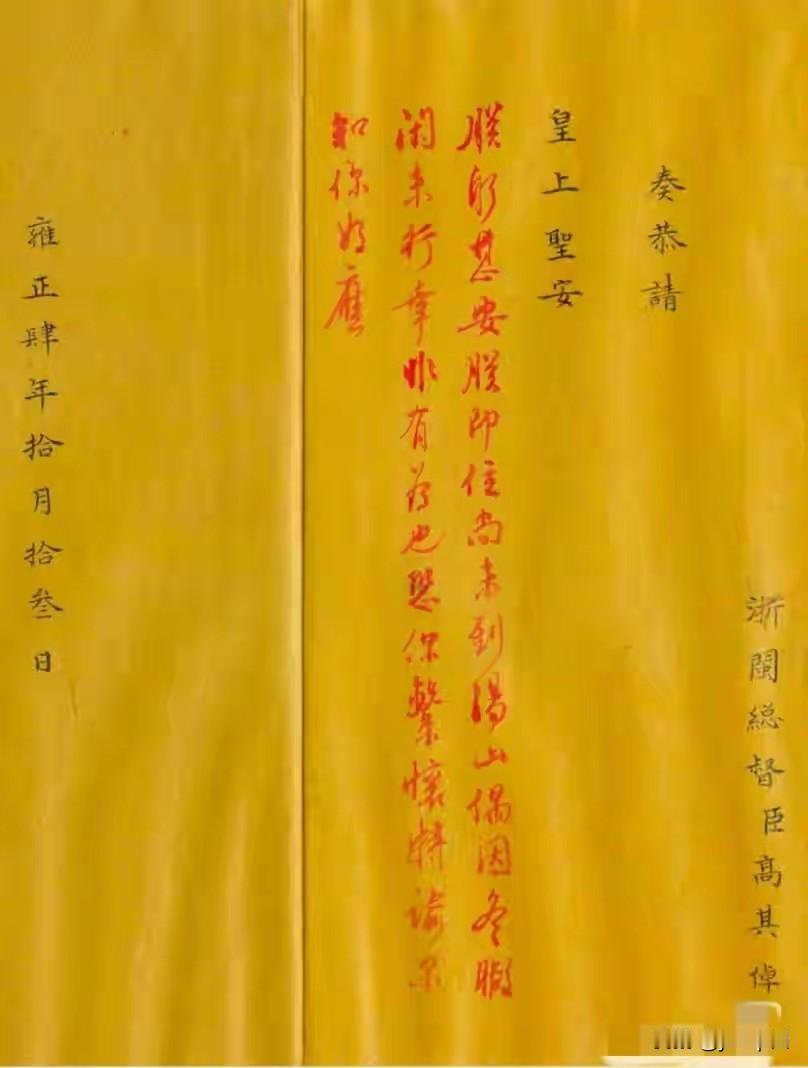 浙閩総督臣高其倬
奏恭請
皇上聖安
朕躬甚安朕即位尚未到湯山偶因冬暇
閑来行幸非有為也恐你繫懷特諭
知你好麽
雍正肆年拾月拾叁日